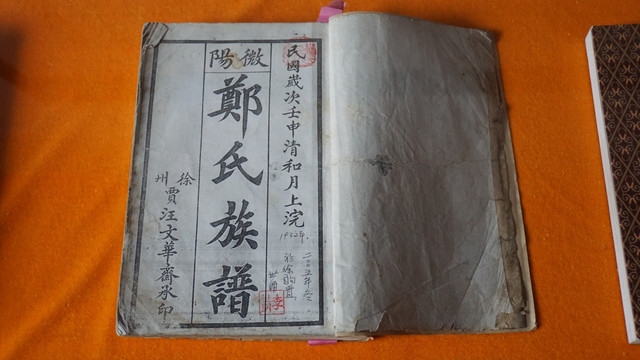 民國歲次壬申清和月上浣
1932年.
二〇〇五年冬
於徐購置
微陽
鄭氏族譜
徐州
賈汪文華齋承印